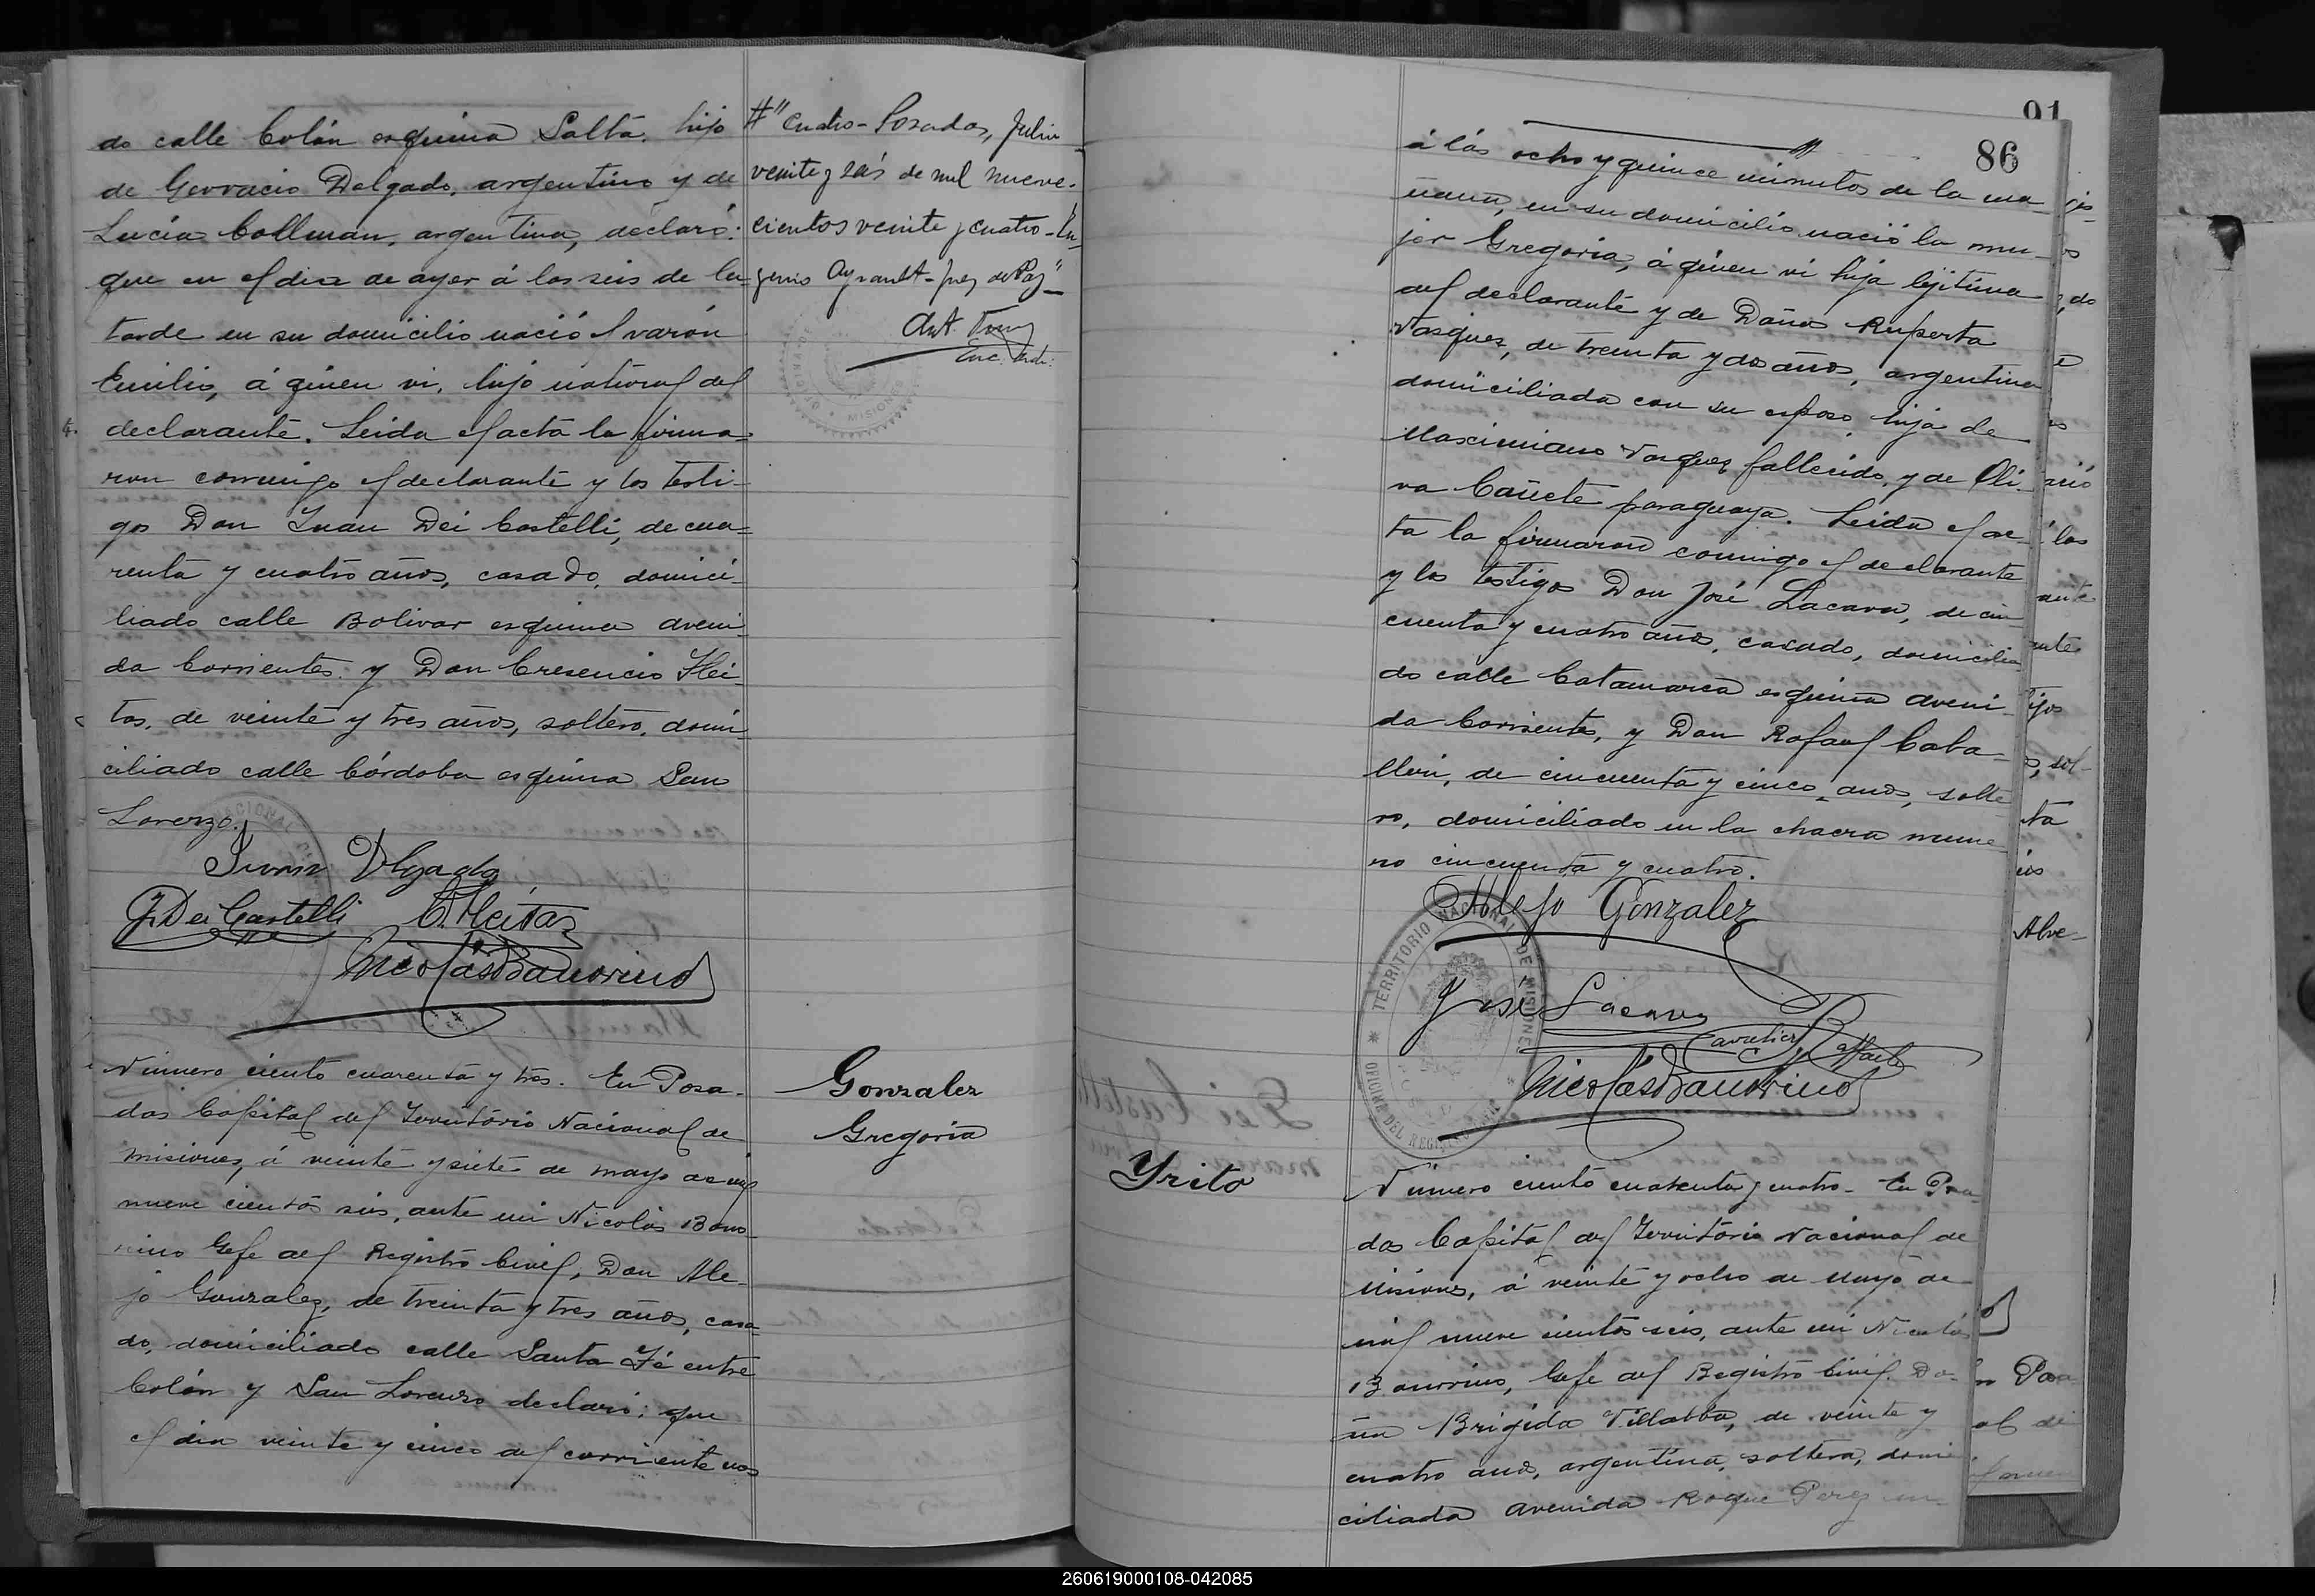 do calle Colón esquina Salta, hijo
de Gervacio Delgado, argentino y de
Lucía Collman, argentina, declaró:
que en el dia de ayer á las seis de la
tarde en su domicilio nació el varón
Emilio, á quien vi, hijo natural del
declarante. Leida el acta la firma-
ron conmigo el declarante y los testi-
gos Don Juan Dei Castelli, de cua-
renta y cuatro años, casado, domici-
liado calle Bolivar esquina aveni-
da Corrientes y Don Cresencio Flei-
tas, de veinte y tres años, soltero, domi-
ciliado calle Córdoba esquina San
Lorenzo.
Juan Delgado
J. Dei Castelli C. Fleitas
Nicolás Bonorino
Número ciento cuarenta y tres. En Posa-
das Capital del Territorio Nacional de
Misiones, á veinte y siete de mayo de mil
nueve cientos seis, ante mi Nicolás Bono-
rino Gefe del Registro Civil, Don Ale-
jo Gonzalez, de treinta y tres años, casa-
do, domiciliado calle Santa Fé entre
Colón y San Lorenzo declaró: que
el dia veinte y cinco del corriente mes
#" cuatro - Posadas, Julio
veinte y seis de mil nueve-
cientos veinte y cuatro - Eu-
genio Ayrault - Juez de Paz"
MISIONES
Gonzalez
Gregoria
91
86
á las ocho y quince minutos de la ma-
ñana, en su domicilio nació la mu-
jer Gregoria, á quien vi hija lejitima
del declarante y de Doña Ruperta
Vasquez, de treinta y dos años, argentina
domiciliada con su esposo, hija de
Maximiano Vasquez fallecido, y de Oli-
va Cañete paraguaya. Leida el ac-
ta la firmaron conmigo el declarante
y los testigos Don José Lacava, de cin-
cuenta y cuatro años, casado, domicilia-
do calle Catamarca esquina aveni-
da Corrientes, y Don Rafael Caba-
lleri, de cincuenta y cinco años, solte-
ro, domiciliado en la chacra nume-
ro cincuenta y cuatro.
Alejo Gonzalez
José Lacava
Cavalieri Raffaele
Nicolás Bonorino
TERRITORIO NACIONAL DE MISIONES
OFICINA DEL REGISTRO CIVIL
Yrito
Número ciento cuarenta y cuatro - En Posa-
das Capital del Territorio Nacional de
Misiones, á veinte y ocho de Mayo de
mil nueve cientos seis, ante mi Nicolás
Bonorino, Gefe del Registro Civil, Do-
ña Brigida Villalba, de veinte y
cuatro años, argentina, soltera, domi-
ciliada avenida Roque Perez
260619000108-042085